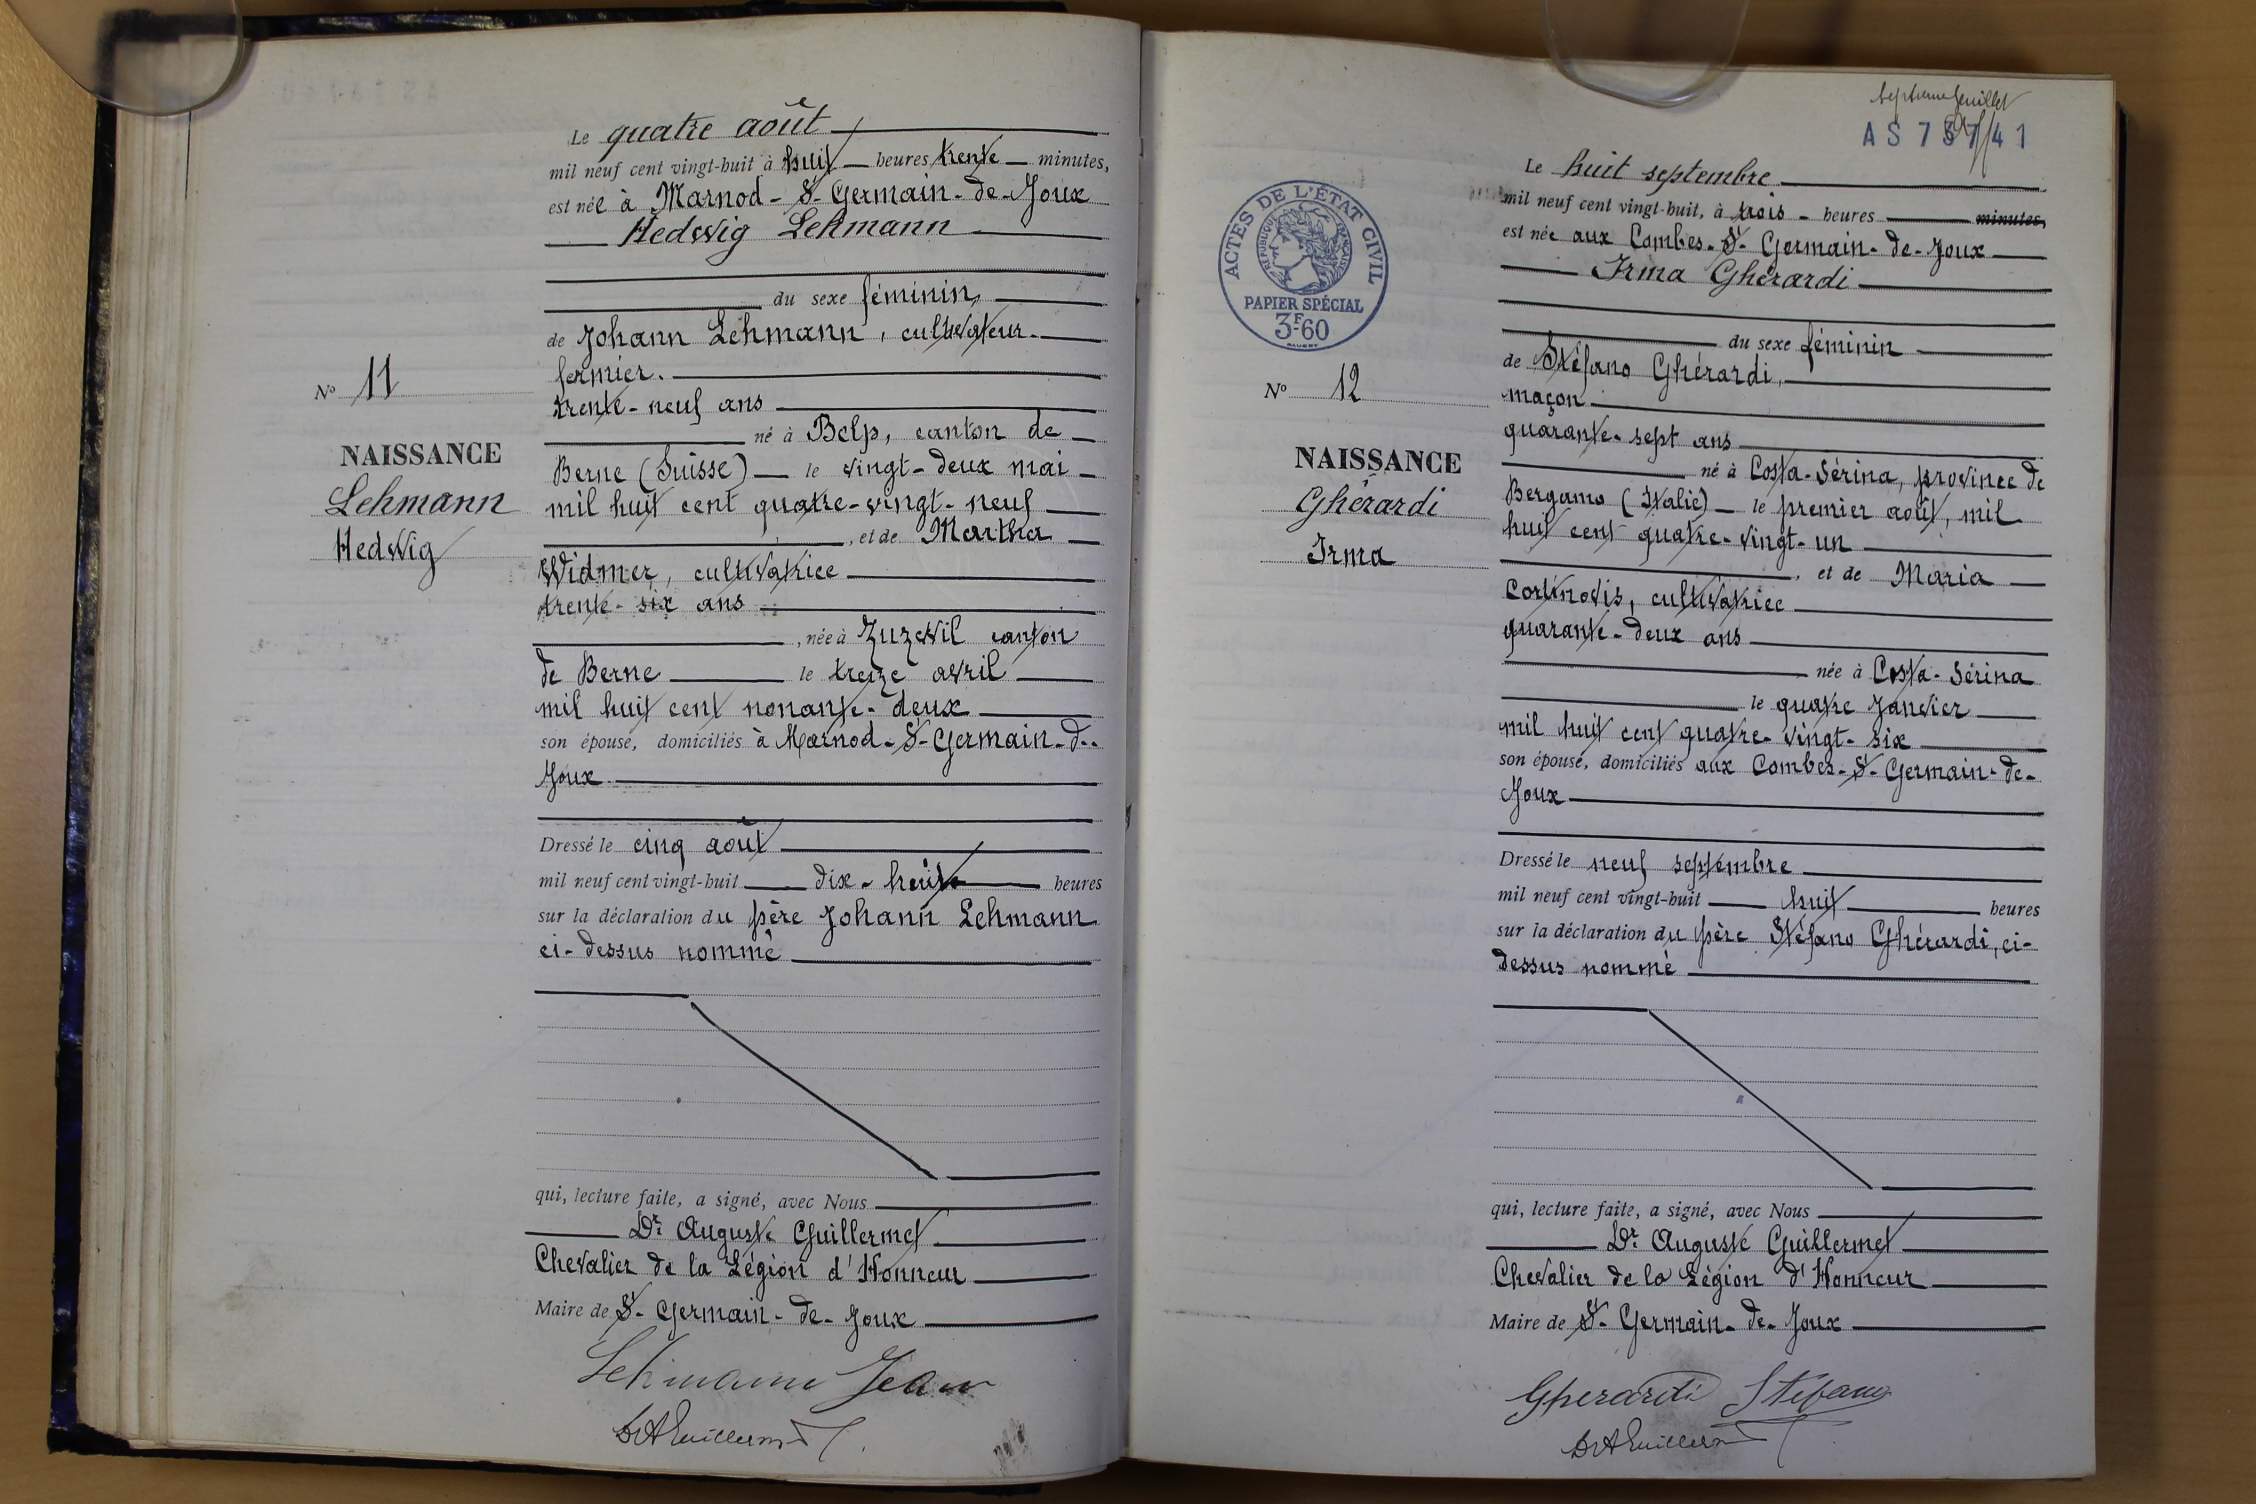 Le quatre août
mil neuf cent vingt-huit à huit heures trente minutes,
est née à Marnod - St Germain - de - Joux
Hedwig Lehmann
du sexe féminin
de Johann Lehmann, cultivateur
fermier.
trente - neuf ans
né à Belp, canton de
Berne (Suisse) le vingt - deux mai
mil huit cent quatre - vingt - neuf
, et de Martha
Widmer, cultivatrice
trente - six ans
, née à Zuzwil canton
de Berne le treize avril
mil huit cent nonante - deux
son épouse, domiciliés à Marnod - St - Germain - de -
Joux
Dressé le cinq août
mil neuf cent vingt-huit dix - huit heures
sur la déclaration du père Johann Lehmann
ci - dessus nommé
qui, lecture faite, a signé, avec Nous
Dr. Auguste Guillermet
Chevalier de la Légion d'Honneur
Maire de St - Germain - de - Joux
Lehmann Jean
Dr A Guillermet
No 11
NAISSANCE
Lehmann
Hedwig
septième feuillet
ACTES DE L'ÉTAT CIVIL
RÉPUBLIQUE FRANÇAISE
PAPIER SPÉCIAL
3F.60
No 12
NAISSANCE
Ghérardi
Irma
Le huit septembre
mil neuf cent vingt-huit, à trois - heures minutes,
est née aux Combes - St - Germain - de - Joux
Irma Ghérardi
du sexe féminin
de Stéfano Ghérardi,
maçon
quarante - sept ans
né à Costa - Sérina, province de
Bergamo (Italie) le premier août, mil
huit cent quatre - vingt - un
, et de Maria
Cortinovis, cultivatrice
quarante - deux ans
née à Costa - Sérina
le quatre Janvier
mil huit cent quatre - vingt - six
son épouse, domiciliés aux Combes - St - Germain - de -
Joux
Dressé le neuf septembre
mil neuf cent vingt-huit huit heures
sur la déclaration du père Stéfano Ghérardi, ci -
dessus nommé
qui, lecture faite, a signé, avec Nous
Dr. Auguste Guillermet
Chevalier de la Légion d'Honneur
Maire de St - Germain - de - Joux
Gherardi Stefano
Dr A Guillermet